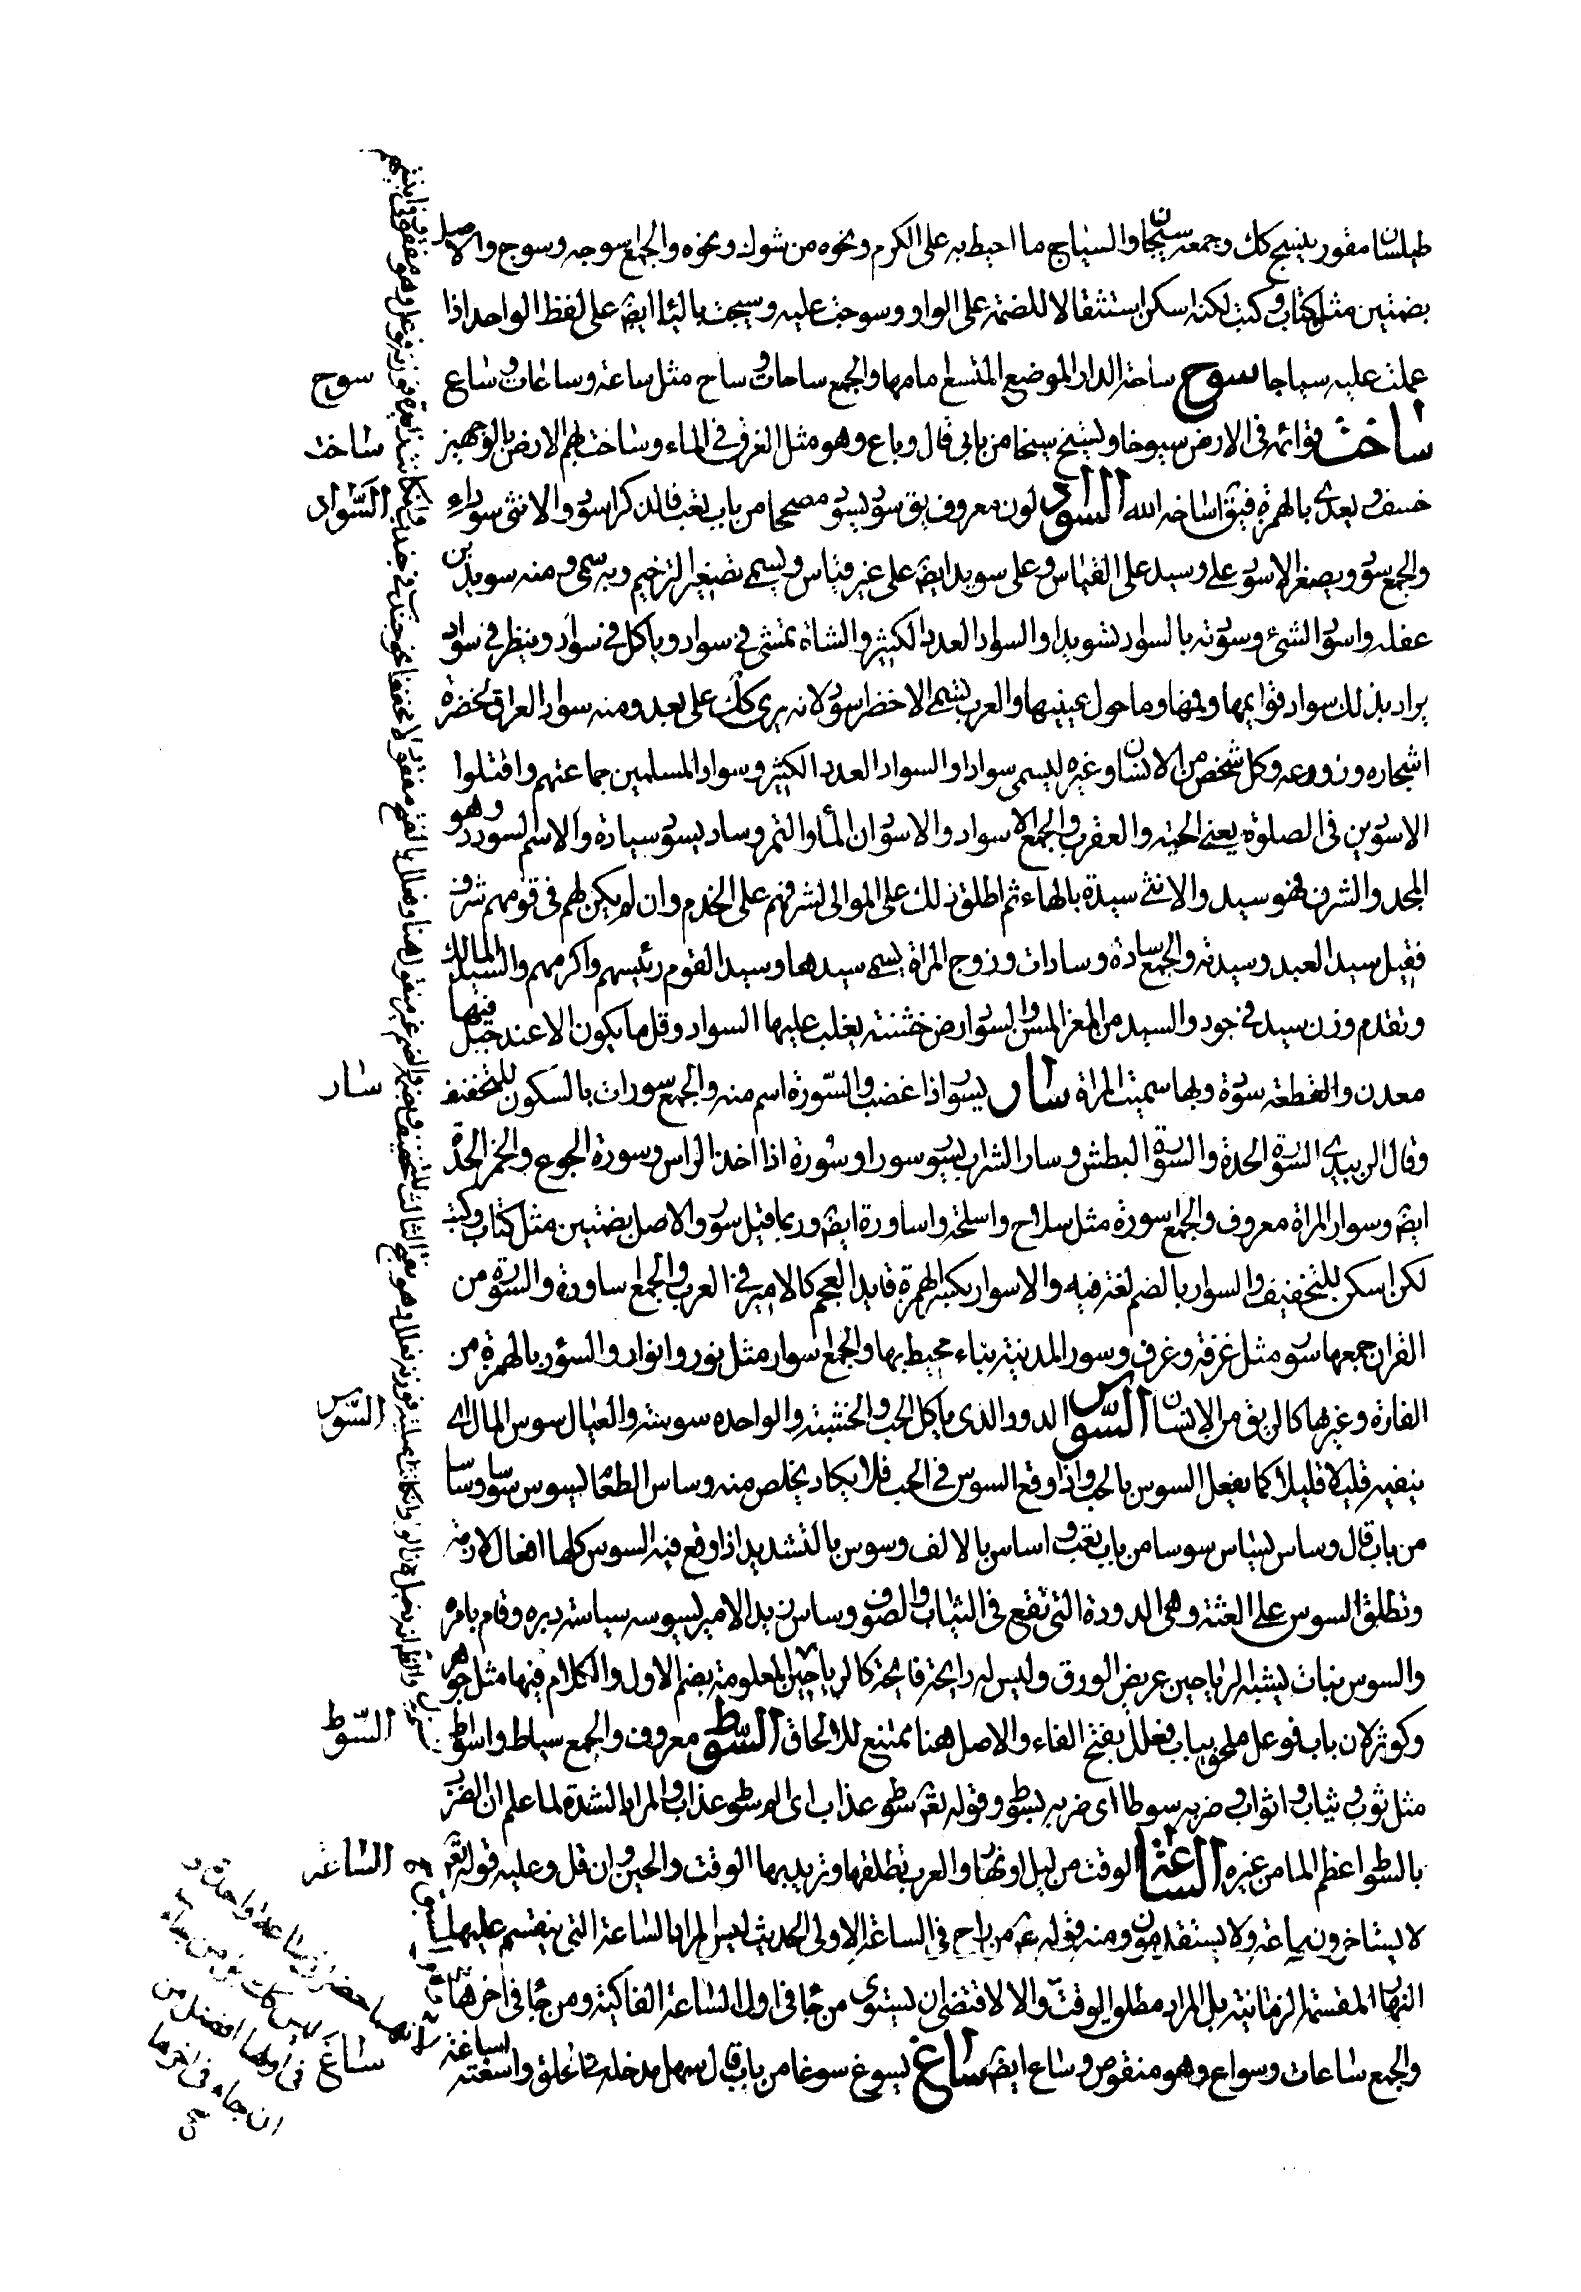 طيلسان مقور ينسج كك وجمعه سيجان والسياج ما احيط به على الكرم ونحوه من شوك ونحوه والجمع اسوجه وسوج والاصل
بضمتين مثل كتاب وكتب لكنه اسكن استثقالا للضمة على الواو وسوجت عليه وسيجت بالياء ايضا على لفظ الواحد اذا
عملت عليه سياجا سوح ساحة الدار الموضع المتسع امامها والجمع ساحات وساح مثل ساعة وساعات وساع
ساخت قوائمه فى الارض سيوخا وتسيخ سيخا من بابى قال وباع وهو مثل الغرق فى الماء وساخت بهم الارض بالوجهين
خسفت ويعدى بالهمزة فيق اساخه الله السواد لون معروف يق سود يسود مصححا من باب تعب فالذكر اسود والانثى سوداء
والجمع سود ويصغر الاسود على اسيد على القياس وعلى سويد ايضا على غير قياس ويسمى تصغير الترخيم وبه سمى ومنه سويد بن
غفله واسود الشىء وسودته بالسواد تسويدا والسواد العدد الكثير والشاة تمشى فى سواد وياكل فى سواد وينظر فى سواد
يراد بذلك سواد قوايمها وفمها وما حول عينيها والعرب تسمى الاخضر اسود لانه يرى كك على بعد ومنه سواد العراق لخضرة
اشجاره وزروعه وكل شخص من الانسان وغيره يسمى سوادا والسواد العدد الكثير وسواد المسلمين جماعتهم واقتلوا
الاسودين فى الصلوة يعنى الحية والعقرب والجمع الاساود والاسودان الماء والتمر وساد يسود سيادة والاسم السودد وهو
المجد والشرف فهو سيد والانثى سيدة بالهاء ثم اطلق ذلك على الموالى لشرفهم على الخدم وان لم يكن لهم فى قومهم شرف
فقيل سيد العبد وسيدته والجمع سادة وسادات وزوج المراة يسمى سيدها وسيد القوم رئيسهم واكرمهم والسيد المالك
وتقدم وزن سيد فى جود والسيد من المعز المسن والسود ارض خشنة يغلب عليها السواد وقل ما يكون الا عند جبل فيها
معدن والقطعة سودة وبها سميت المراة سار يسور اذا غضب والسورة اسم منه والجمع سورات بالسكون للتخفيف
وقال الزبيدى السورة الحدة والسورة البطش وسار الشراب يسور سورا وسورة اذا اخذ الراس وسورة الجوع والخمر الحدة
ايضا وسوار المراة معروف والجمع اسورة مثل سلاح واسلحة واساورة ايضا وربما قيل سور والاصل بضمتين مثل كتاب وكتب
لكن اسكن للتخفيف والسوار بالضم لغة فيه والاسوار بكسر الهمزة قايد العجم كالامير فى العرب والجمع اساورة والسورة من
القران جمعها سور مثل غرفة وغرف وسور المدينة بناء محيط بها والجمع اسوار مثل نور وانوار والسؤر بالهمزة من
الفارة وغيرها كالريق من الانسان السوس الدود الذى ياكل الحب والخشب والواحده سوسة والعيال سوس المال اى
ينفيه قليلا قليلا كما يفعل السوس بالحب واذا وقع السوس فى الحب فلا يكاد يخلص منه وساس الطعام يسوس سوسا وساسا
من باب قال وساس يساس سوسا من باب تعب واساس بالالف وسوس بالتشديد اذا وقع فيه السوس كلها افعال لازمة
وتطلق السوس على العثة وهى الدودة التى تقع فى الثياب والصوف وساس زيد الامر يسوسه سياسة دبره وقام بامره
والسوس نبات يشبه الرياحين عريض الورق وليس له رايحة فايحة كالرياحين المعلومة بضم الاول والكلام فيها مثل جوهر
وكوثر لان باب فوعل ملحق بباب فعلل بفتح الفاء والاصل هنا ممتنع للالحاق السوط معروف والجمع سياط واسواط
مثل ثوب وثياب واثواب وضربه سوطا اى ضربه بسوط وقوله تعالى سوط عذاب اى الم سوط عذاب والمراد الشدة لما علم ان الضرب
بالسوط اعظم الما من غيره الساعة الوقت من ليل او نهار والعرب تطلقها وتريد بها الوقت والحين وان قل وعليه قوله تعالى
لا يستاخرون ساعة ولا يستقدمون ومنه قوله عم من راح فى الساعة الاولى الحديث ليس المراد الساعة التى ينقسم عليها
النهار القسمة الزمانية بل المراد مطلق الوقت والا لاقتضى ان يستوى من جاء فى اول الساعة الفلكية ومن جاء فى اخرها
والجمع ساعات وسواع وهو منقوص وساع ايضا ساغ يسوغ سوغا من باب قال سهل مدخله فى الحلق واسغته اساغة
سوح
ساخت
السواد
سار
السوس
السوط
الساعة
ساغ
لانهما حضرا فى ساعة واحدة
فى اولها افضل من
ان جاء فى اخرها